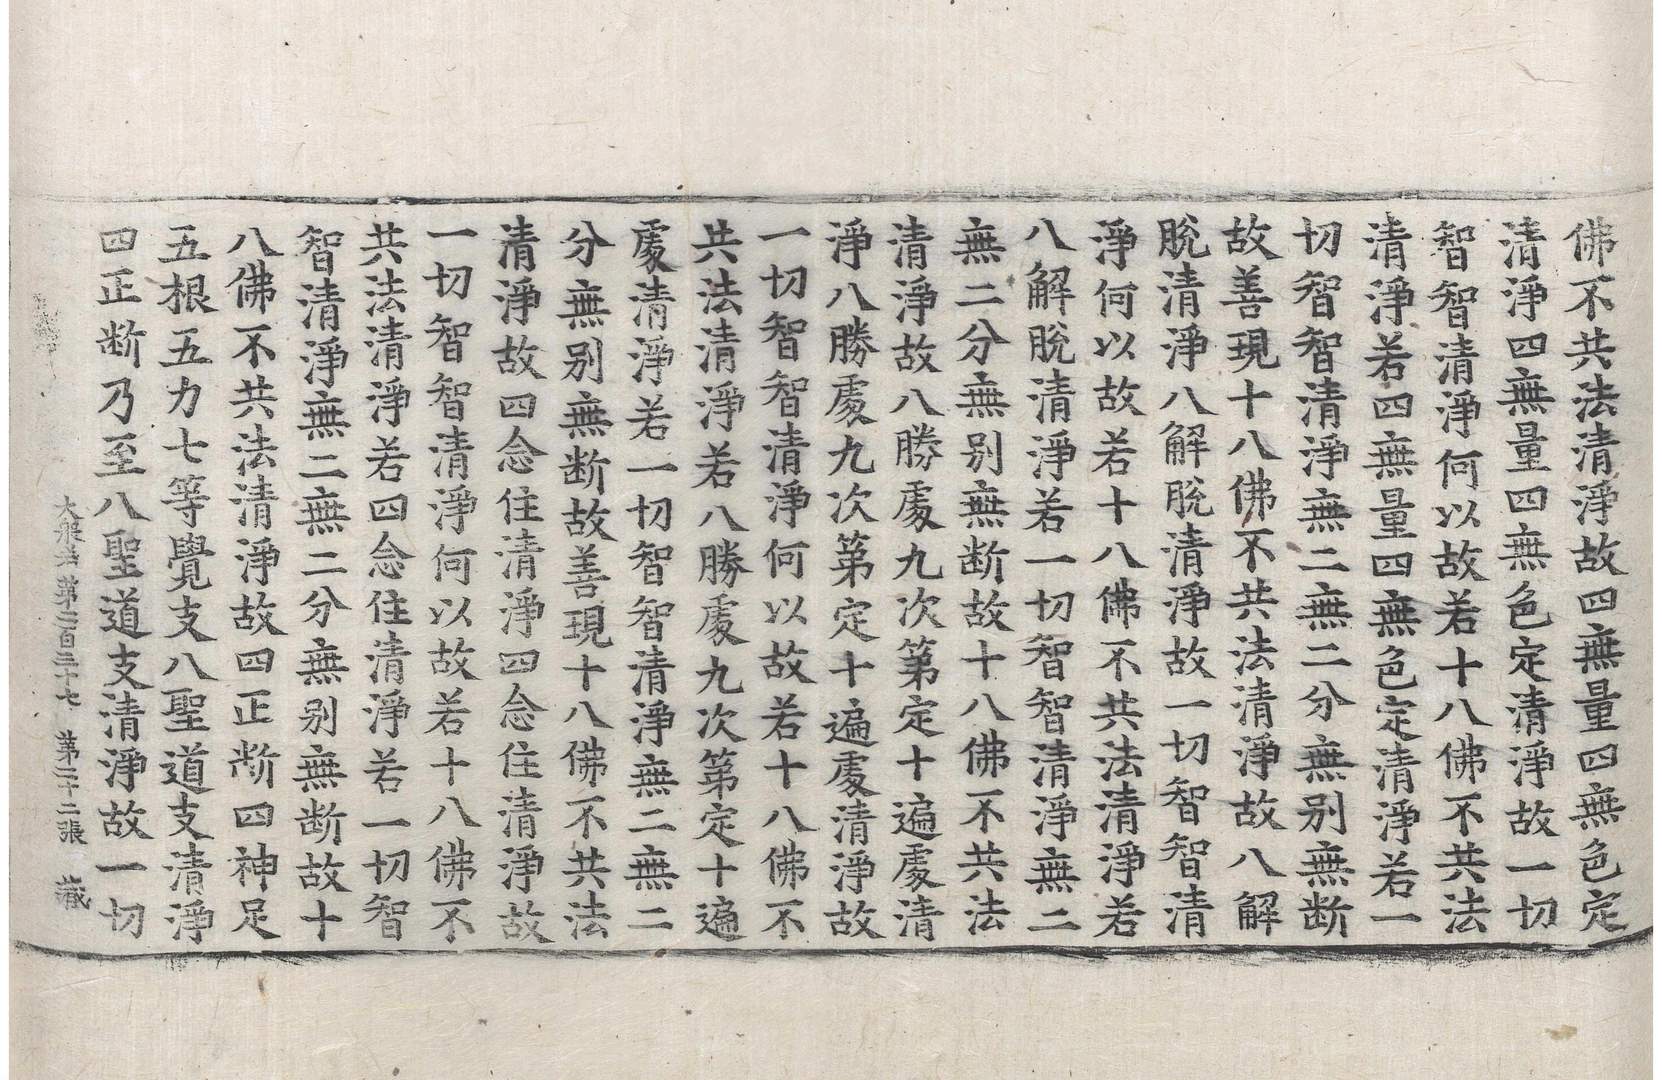 佛不共法清淨故四無量四無色定
清淨四無量四無色定清淨故一切
智智清淨何以故若十八佛不共法
清淨若四無量四無色定清淨若一
切智智清淨無二無二分無别無断
故善現十八佛不共法清淨故八解
脫清淨八解脫清淨故一切智智清
淨何以故若十八佛不共法清淨若
八解脫清淨若一切智智清淨無二
無二分無别無断故十八佛不共法
清淨故八勝處九次第定十遍處清
淨八勝處九次第定十遍處清淨故
一切智智清淨何以故若十八佛不
共法清淨若八勝處九次第定十遍
處清淨若一切智智清淨無二無二
分無别無断故善現十八佛不共法
清淨故四念住清淨四念住清淨故
一切智智清淨何以故若十八佛不
共法清淨若四念住清淨若一切智
智清淨無二無二分無别無断故十
八佛不共法清淨故四正断四神足
五根五力七等覺支八聖道支清淨
四正断乃至八聖道支清淨故一切
大般若第二百三十七 第二十二張 藏